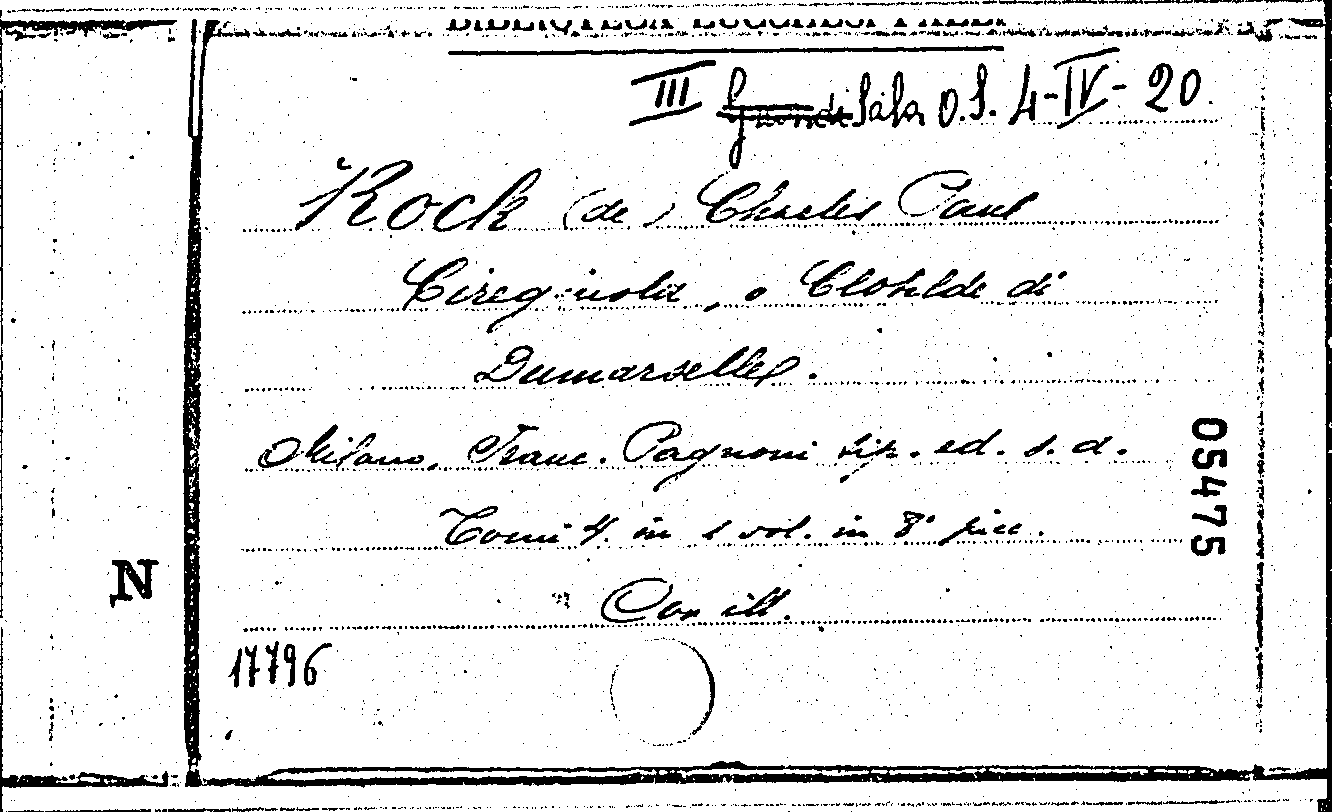 BIBLIOTECA LUCCHESI PALLI
III Grande Sala O.S. 4-IV-20
Kock (de) Charles Paul
Ciregiuola, o Clotilde di
Dumarselles.
Milano, Franc. Pagnoni tip. ed. s. d.
Tomi 4. in 1 vol. in 8° picc.
Con ill.
05475
N
17796